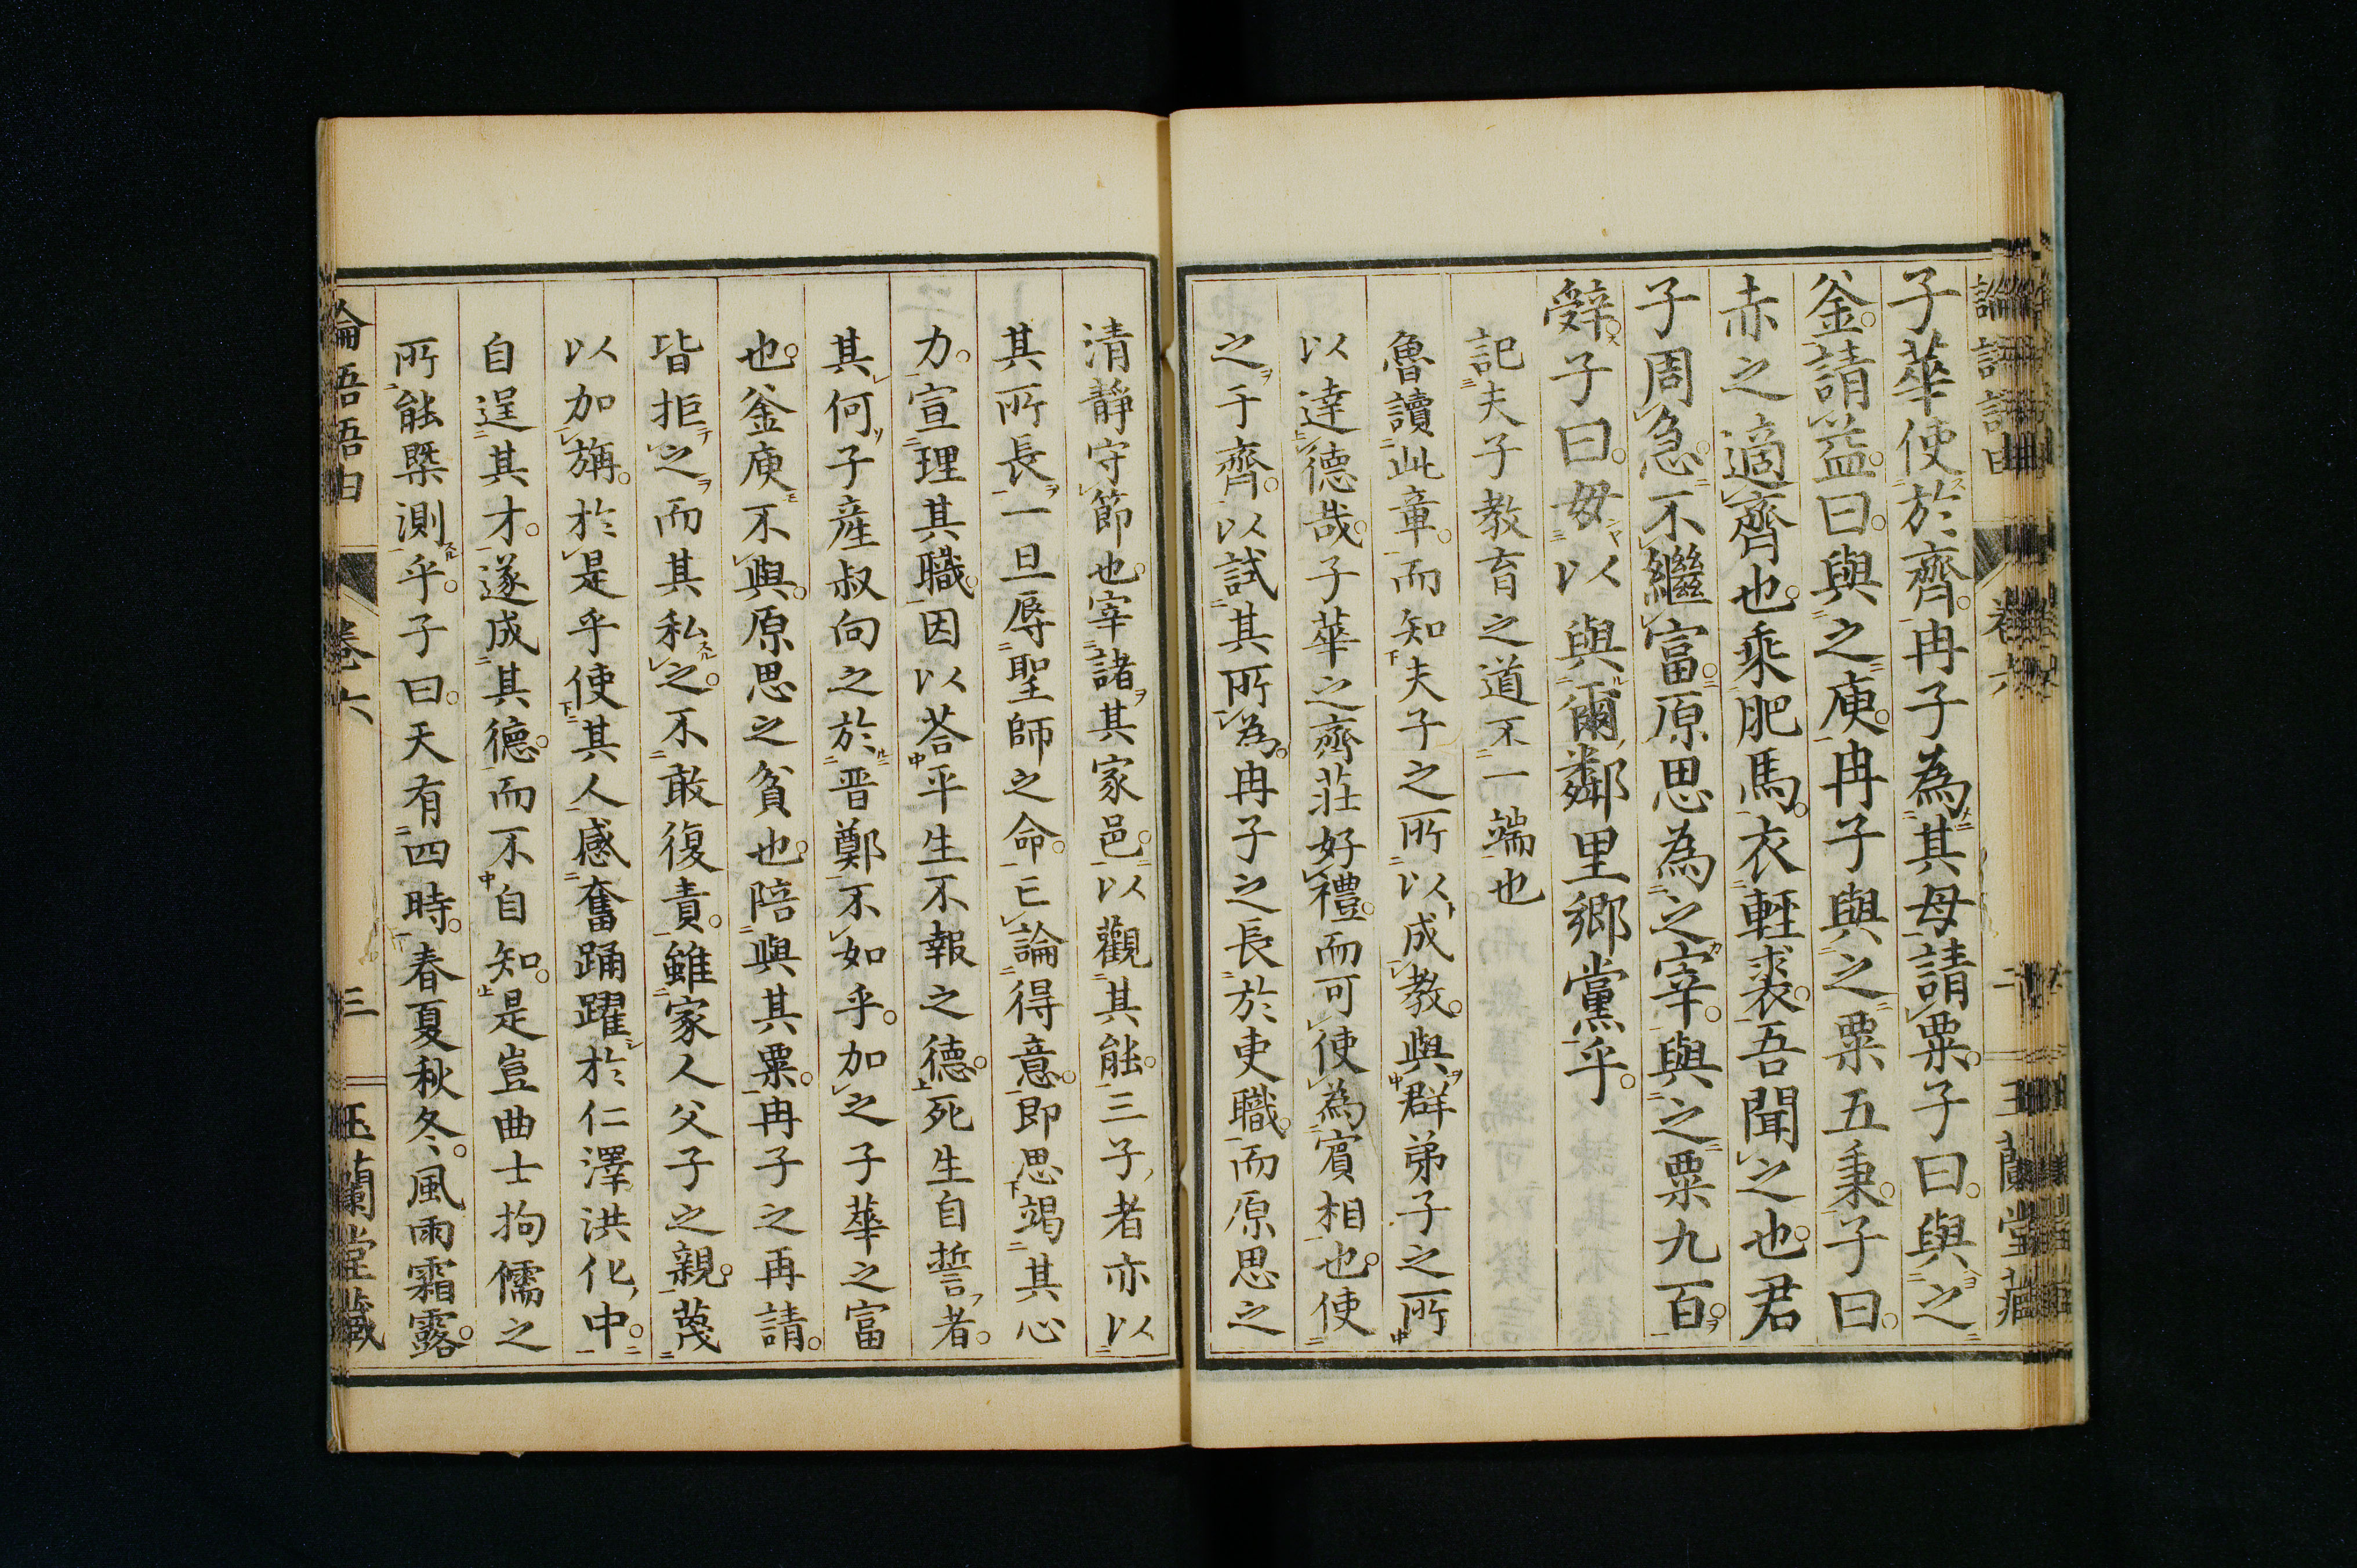 子華使於齊冉子為其母請粟子曰與之
釜請益曰與之庾冉子與之粟五秉子曰
赤之適齊也乘肥馬衣輕裘吾聞之也君
子周急不繼富原思為之宰與之粟九百
辭子曰毋以與爾鄰里鄉黨乎
記夫子教育之道不一端也
魯讀此章而知夫子之所以成教與群弟子之所
以達德哉子華之齊莊好禮而可使為賓相也使
之于齊以試其所為冉子之長於吏職而原思之
清靜守節也宰諸其家邑以觀其能三子者亦以
其所長一旦辱聖師之命亡論得意即思竭其心
力宣理其職因以荅平生不報之德死生自誓者
其何子產叔向之於晋鄭不如乎加之子華之富
也釜庾不與原思之貧也陪與其粟冉子之再請
皆拒之而其私之不敢復責雖家人父子之親蔑
以加旃於是乎使其人感奮踊躍於仁澤洪化中
自逞其才遂成其德而不自知是豈曲士拘儒之
所能槩測乎子曰天有四時春夏秋冬風雨霜露
卷六 三 玉蘭堂藏